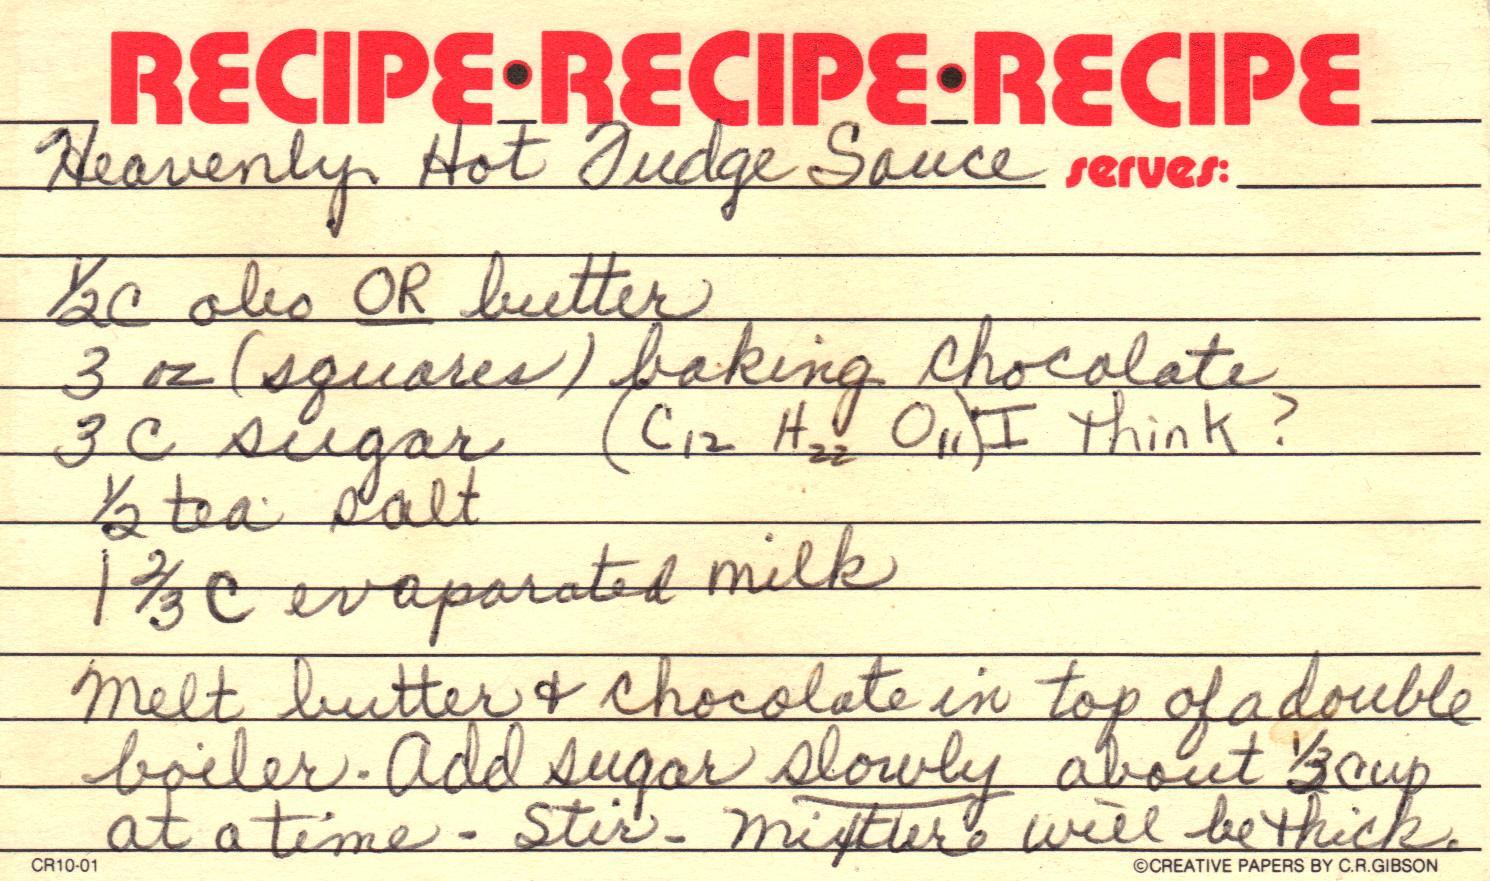 RECIPE•RECIPE•RECIPE
Heavenly Hot Fudge Sauce serves:
1/2 c oleo OR butter
3 oz (squares) baking chocolate
3 C sugar (C12 H22 O11) I think?
1/2 tea salt
1 2/3 C evaporated milk
Melt butter & chocolate in top of a double
boiler. Add sugar slowly about 1/3 cup
at a time - Stir - Mixture will be thick.
CR10-01 ©CREATIVE PAPERS BY C.R.GIBSON